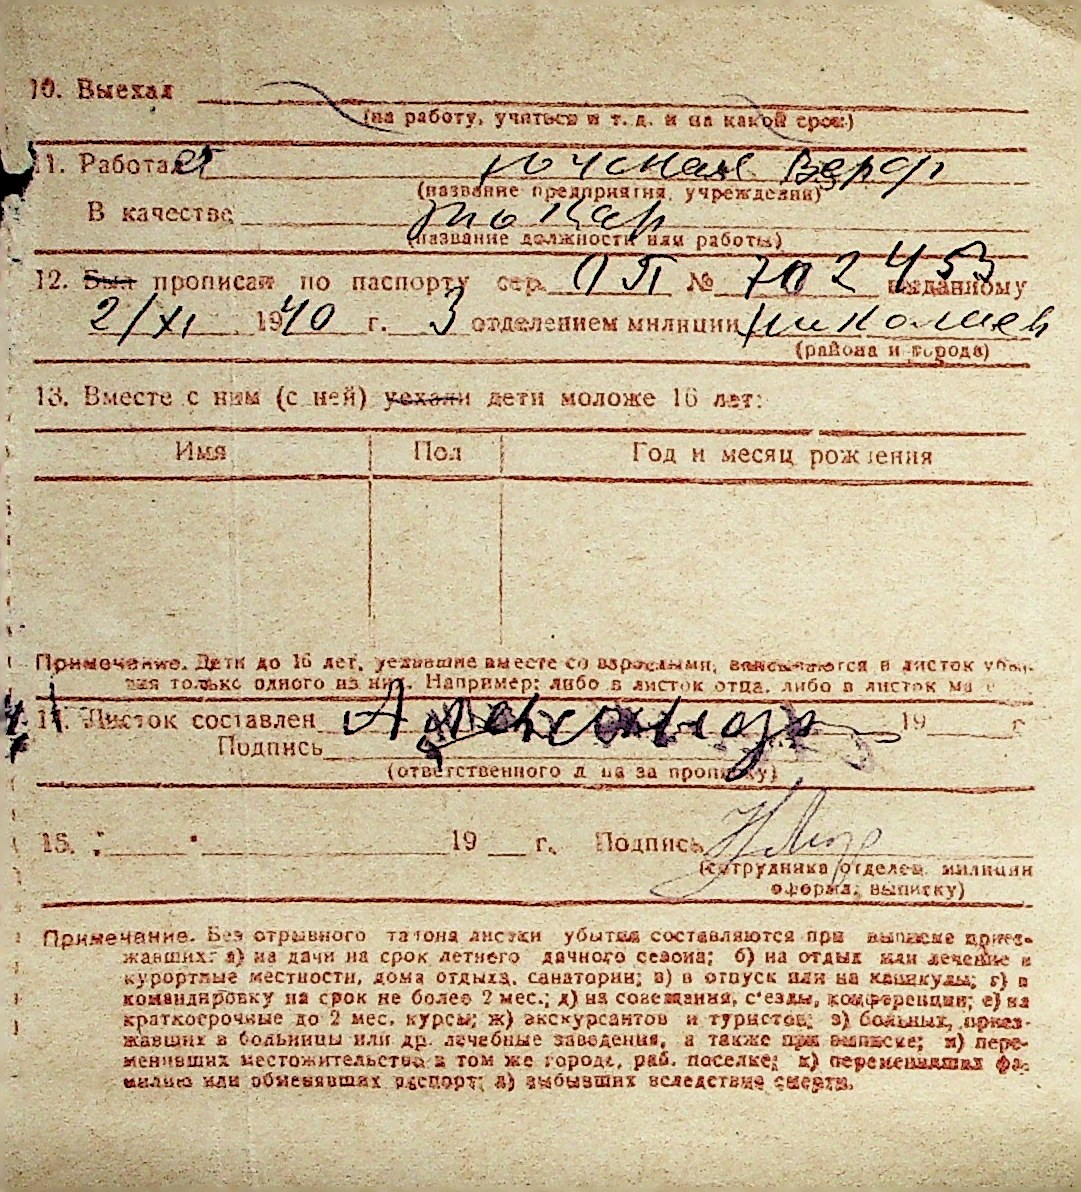 10. Выехал
(на работу, учиться и т. д. и на какой срок)
11. Работает южная Верф
(название предприятия, учреждения)
В качестве токар
(название должности или работы)
12. Был прописан по паспорту сер. № 702453 выданному
2/XI 1940 г. 3 отделением милиции Николаев
(района и города)
13. Вместе с ним (с ней) уехали дети моложе 16 лет:
Имя Пол Год и месяц рождения
Примечание. Дети до 16 лет, уехавшие вместе со взрослыми, вписываются в листок убы-
тия только одного из них. Например: либо в листок отца, либо в листок
14. Листок составлен 19 г
Подпись
(ответственного лица за прописку)
15. " " 19 г. Подпись
(сотрудника отделен. милиции
оформл. выписку)
Примечание. Без отрывного талона листки убытия составляются при выписке приез-
жавших: а) на дачи на срок летнего дачного сезона; б) на отдых или лечение в
курортные местности, дома отдыха, санатории; в) в отпуск или на каникулы; г) в
командировку на срок не более 2 мес.; д) на совещания, с'езды, конференции; е) на
краткосрочные до 2 мес. курсы; ж) экскурсантов и туристов; з) больных, приез-
жавших в больницы или др. лечебные заведения, а также при выписке; и) пере-
менивших местожительство в том же городе, раб. поселке; к) переменивших фа-
милию или обменявших паспорт; л) выбывших вследствие смерти.